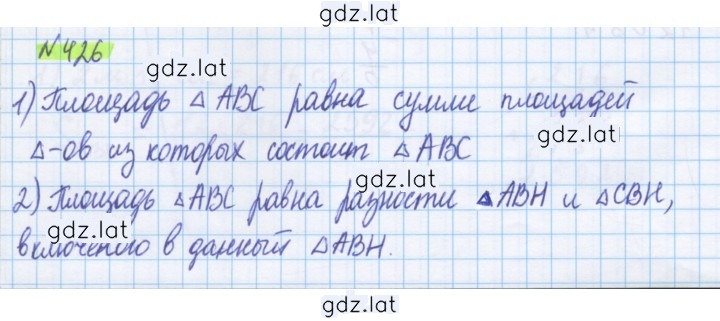 gdz.lat
№426
gdz.lat
1) Площадь △ ABC равна сумме площадей
gdz.lat
△-ов из которых состоит △ABC
gdz.lat
2) Площадь △ABC равна разности △ABH и △CBH,
gdz.lat
включеного в данный △ABH.
gdz.lat